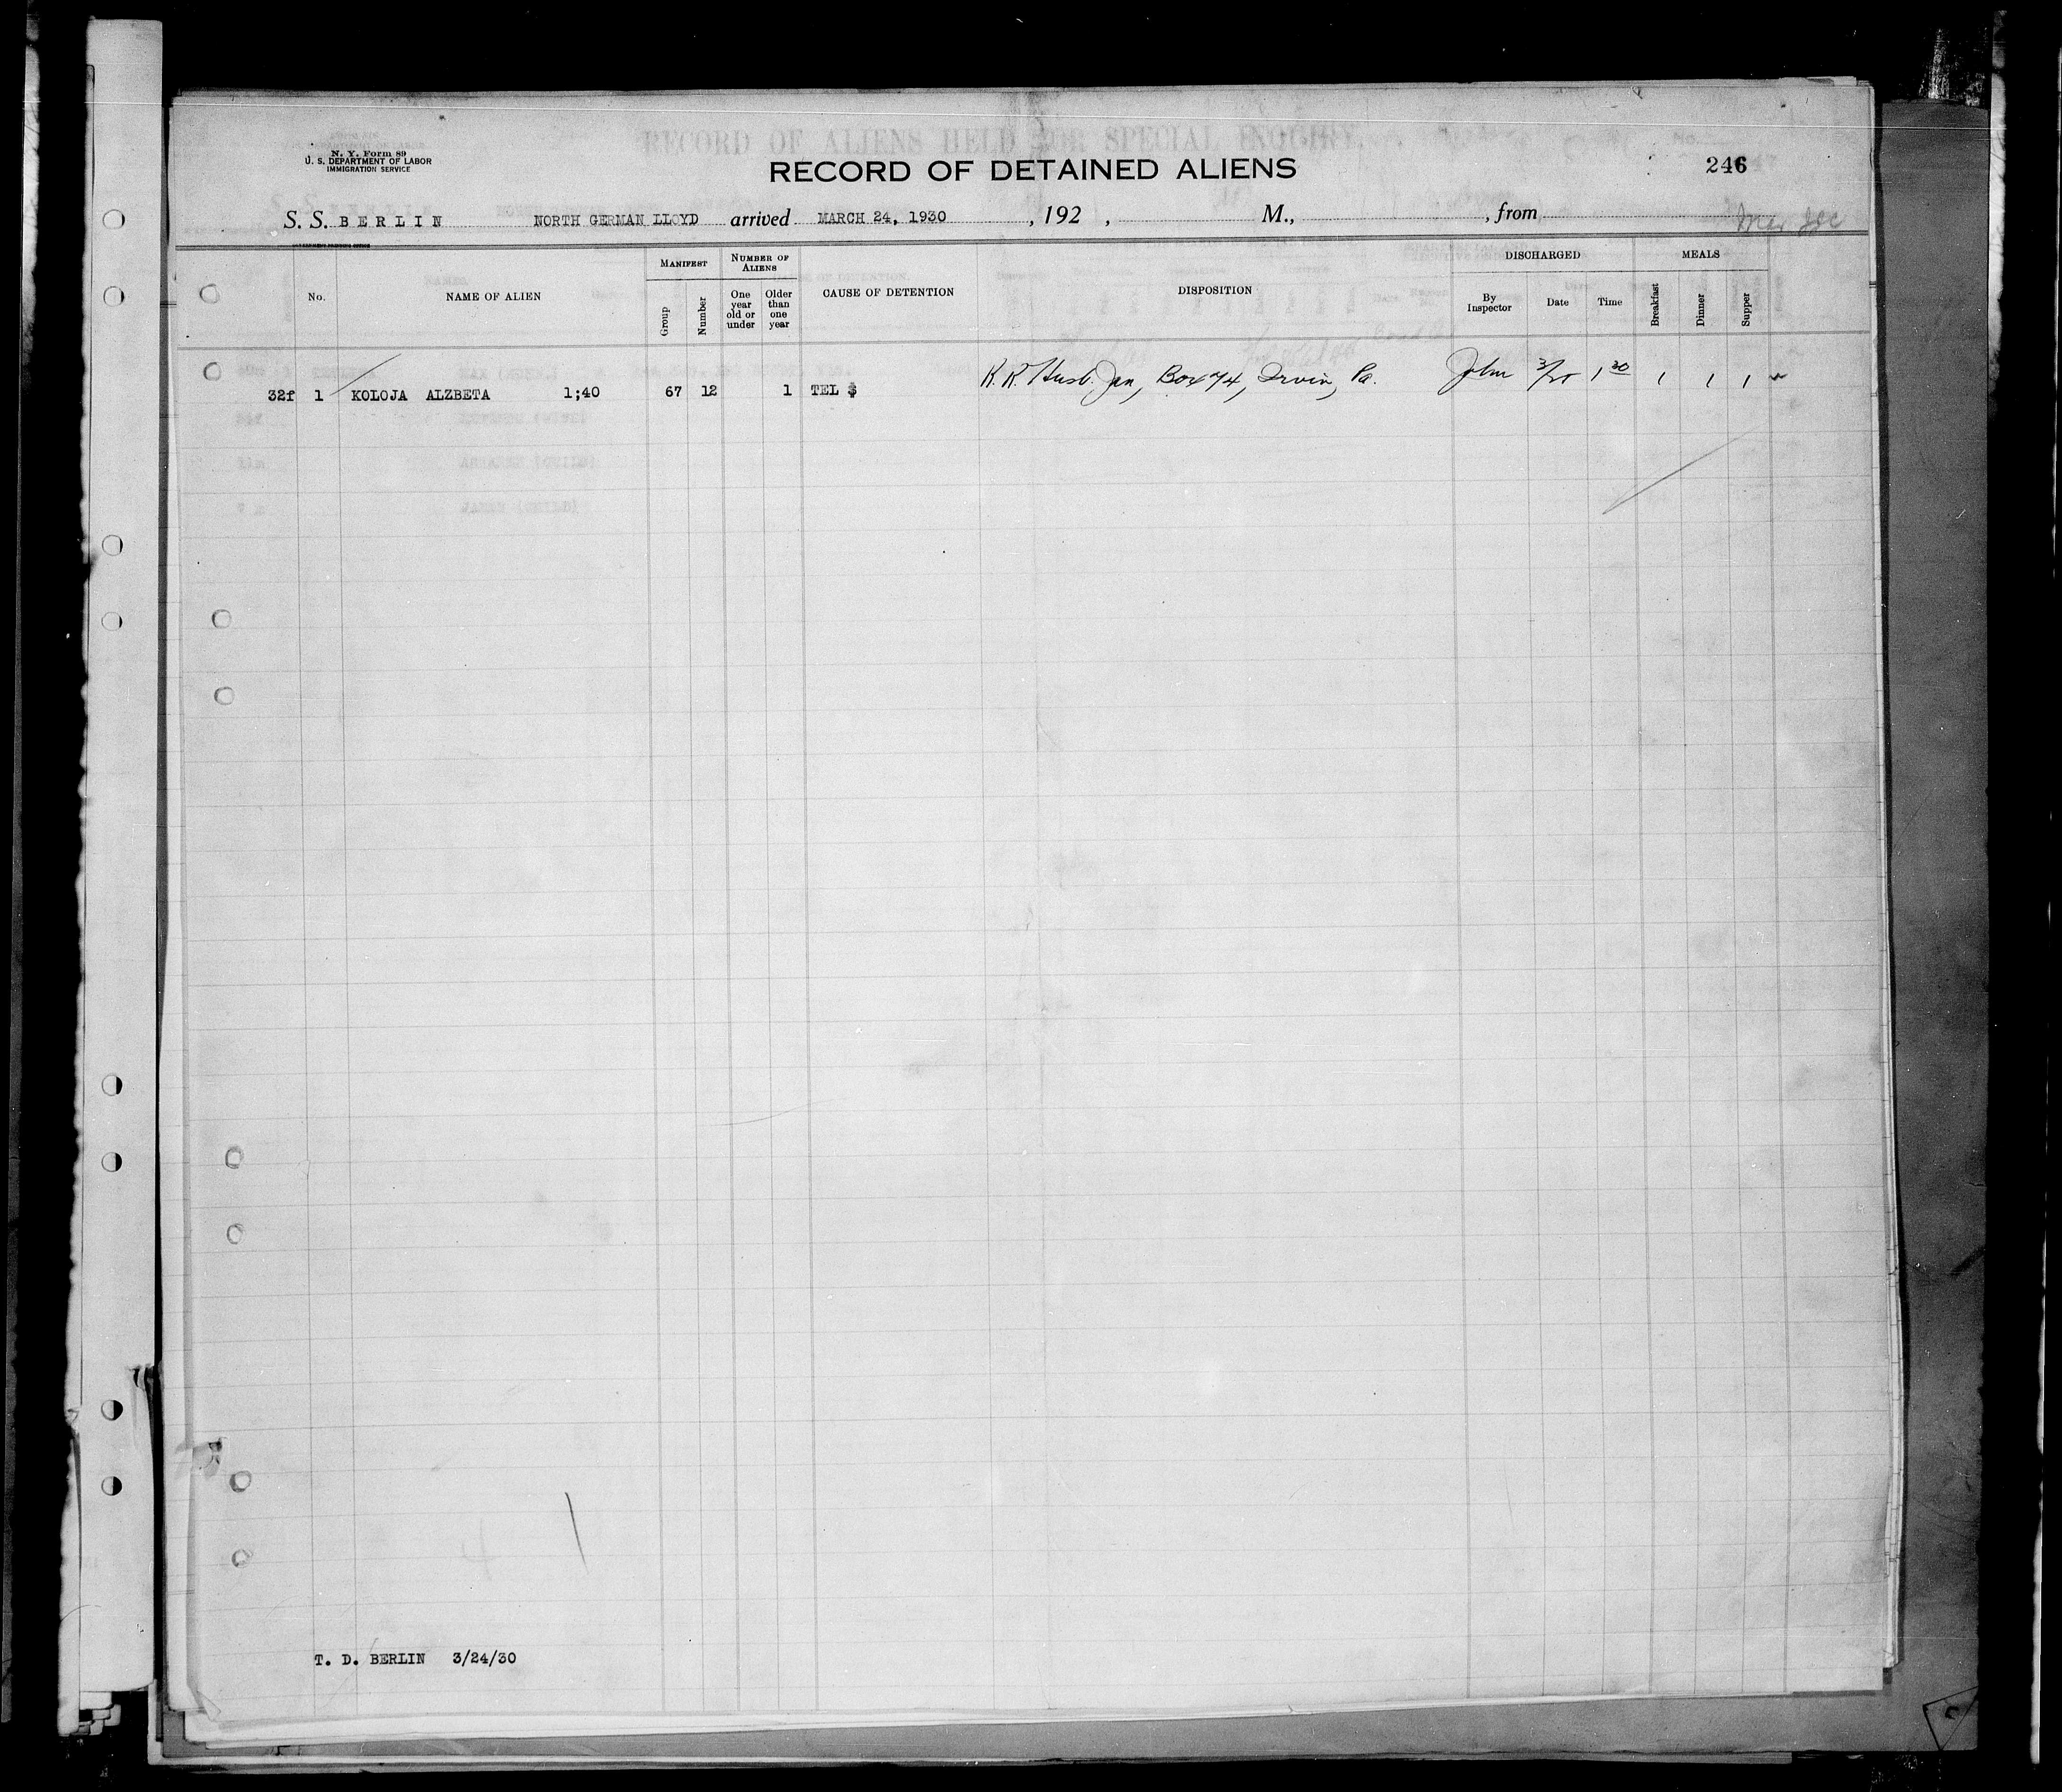 RECORD OF ALIENS HELD FOR SPECIAL INQUIRY
N. Y. Form 89
U. S. DEPARTMENT OF LABOR
IMMIGRATION SERVICE
RECORD OF DETAINED ALIENS
246
S. S. BERLIN NORTH GERMAN LLOYD arrived MARCH 24, 1930, 192 , M., , from
GOVERNMENT PRINTING OFFICE
No. NAME OF ALIEN MANIFEST Group Number NUMBER OF ALIENS One year old or under Older than one year CAUSE OF DETENTION DISPOSITION DISCHARGED By Inspector Date Time MEALS Breakfast Dinner Supper
32f 1 KOLOJA ALZBETA 1;40 67 12 1 TEL $ R.R. Husb. Jan, Box 74, Irvin, Pa. John 3/25 1 30 1 1 1
T. D. BERLIN 3/24/30